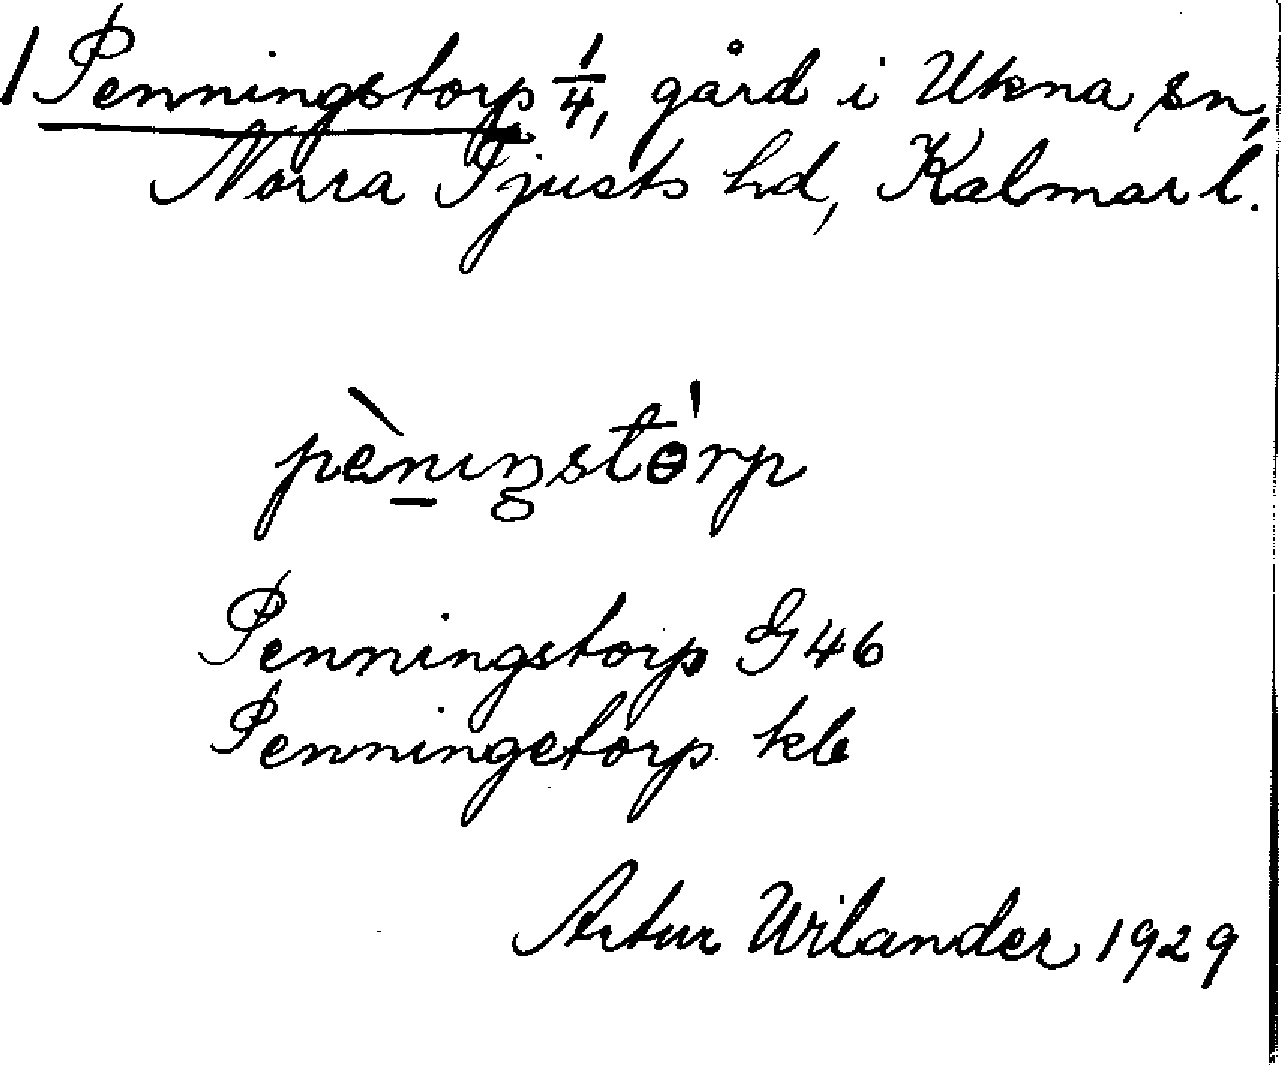 1 Penningstorp 1/4, gård i Ukna sn,
Norra Tjusts hd, Kalmar l.
pènıŋstɵ́rp
Penningstorp G46
Penningetorp kb
Artur Wilander 1929